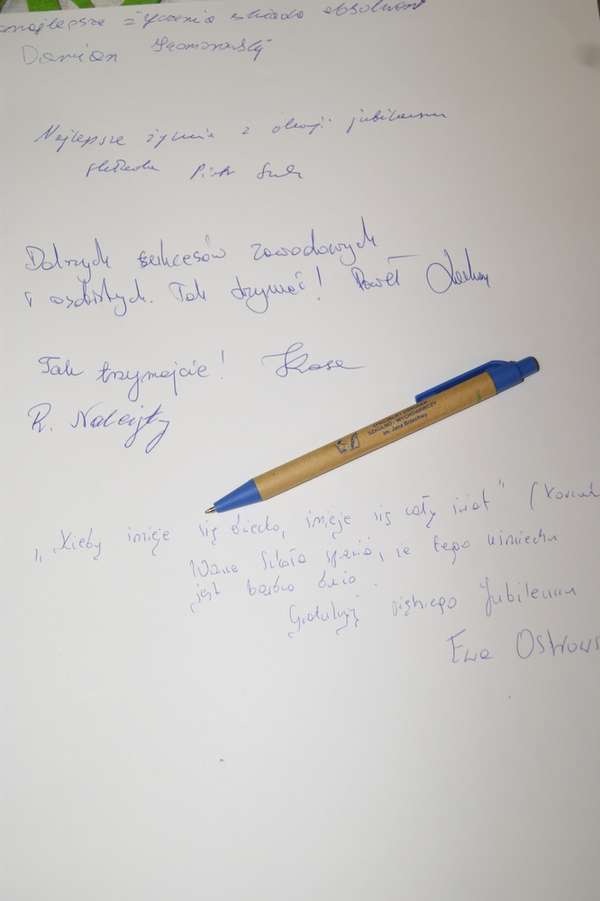 najlepsze życzenia składa absolwent
Damian
Najlepsze życzenia z okazji jubileuszu
składa Piotr
Dalszych sukcesów zawodowych
i osobistych. Tak trzymać! Paweł
Tak trzymajcie!
R. Nalezyty
SZKOLNO - WYCHOWAWCZY
im. Jana Brzechwy
„Kiedy śmieje się dziecko, śmieje się cały świat" (Korczak
Wasza Szkoła sprawia, że tego uśmiechu
jest bardzo dużo.
Gratuluję pięknego Jubileuszu
Ewa Ostrows